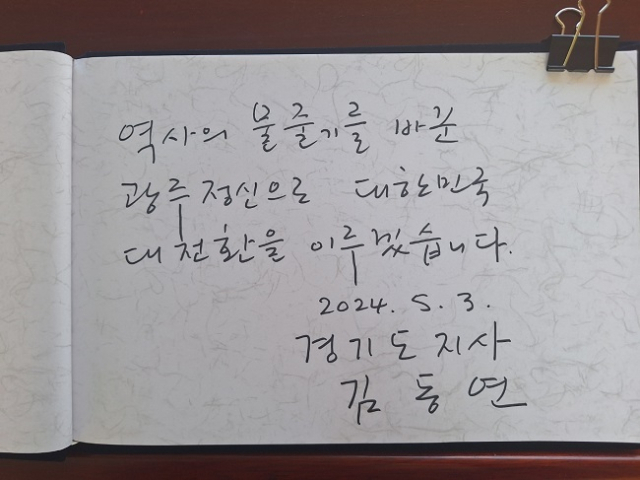 역사의 물줄기를 바꾼
광주정신으로 대한민국
대전환을 이루겠습니다.
2024. 5. 3.
경기도지사
김동연